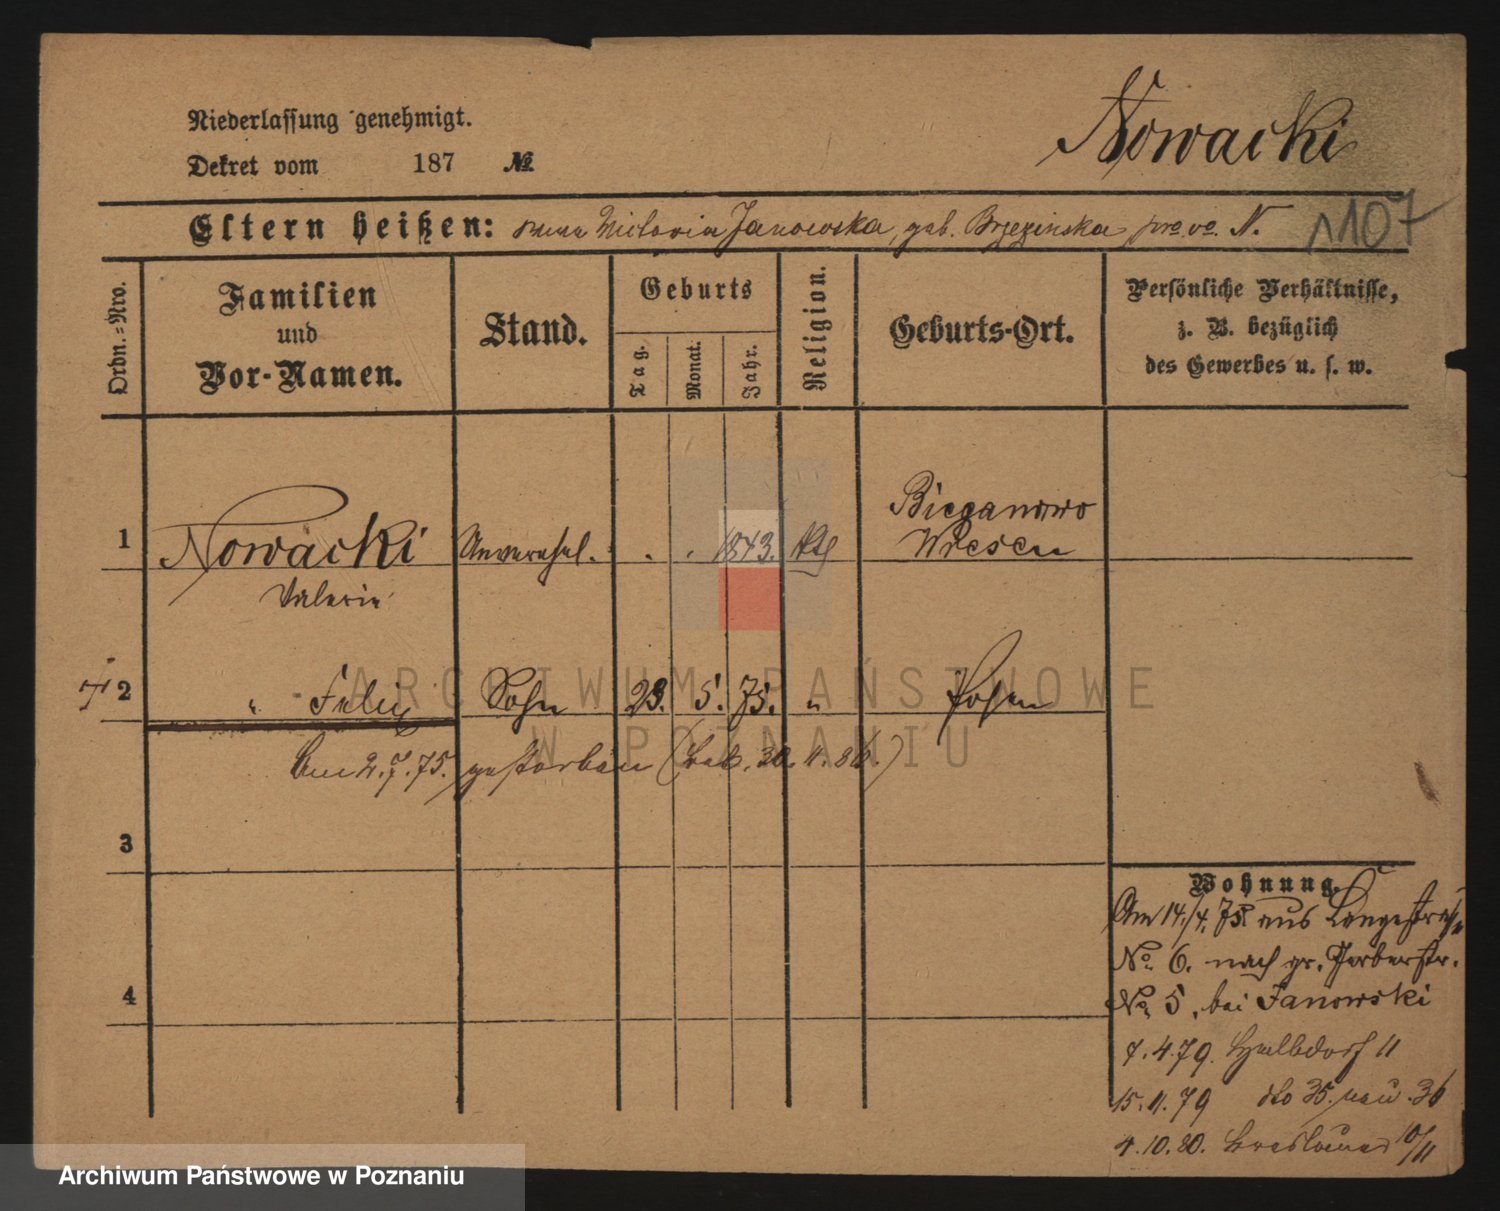 Niederlassung genehmigt.
Dekret vom 187 №
Nowacki
Eltern heißen: Victoria Janowska, geb. Brzezinska, N.
1107
Ordn.-Nro.
Familien
und
Vor-Namen.
Stand.
Geburts
Tag.
Monat.
Jahr.
Religion.
Geburts-Ort.
Persönliche Verhältnisse,
z. B. bezüglich
des Gewerbes u. s. w.
1 Nowacki Unverehel. 1843. kth
Bieganowo
Wreschen
Valerie
† 2 " Felix Sohn 23. 5. 75. " Posen
Am 2.7.75. gestorben
3
4
Wohnung.
Am 14./4. 75. aus Langestraße
No. 6. nach gr. Gerberstr.
No. 5, bei Janowski
7.4.79. Halbdorf 11
15.11.79 dto 35. neu. 36
4.10.80. Breslauer 10/11
ARCHIWUM PAŃSTWOWE
W POZNANIU
Archiwum Państwowe w Poznaniu